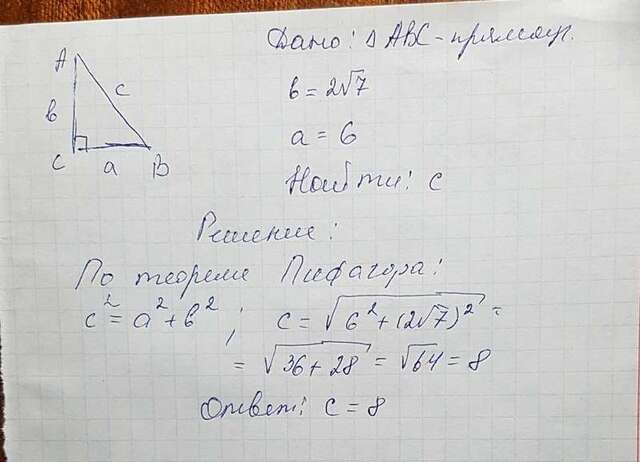 Дано: Δ ABC - прямоуг.
A
c
b = 2√7
b
a = 6
C a B
Найти: c
Решение:
По теореме Пифагора:
c² = a² + b² ; c = √(6² + (2√7)²) =
= √(36 + 28) = √64 = 8
Ответ: c = 8